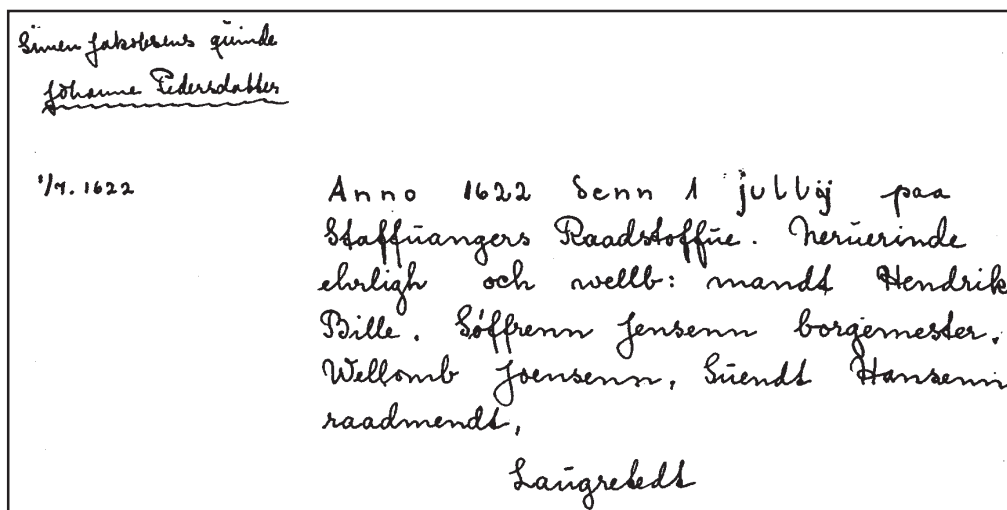 Simen Jakobsens quinde
Johanne Pedersdatter
1/7. 1622
Anno 1622 denn 1 jullij paa
Staffuangers Raadstoffue. Neruerinde
ehrligh och wellb: mandt Hendrik
Bille. Söffrenn Jensenn borgemester.
Wellomb Joensenn, Suendt Hansenn
raadmendt,
Laugretedt